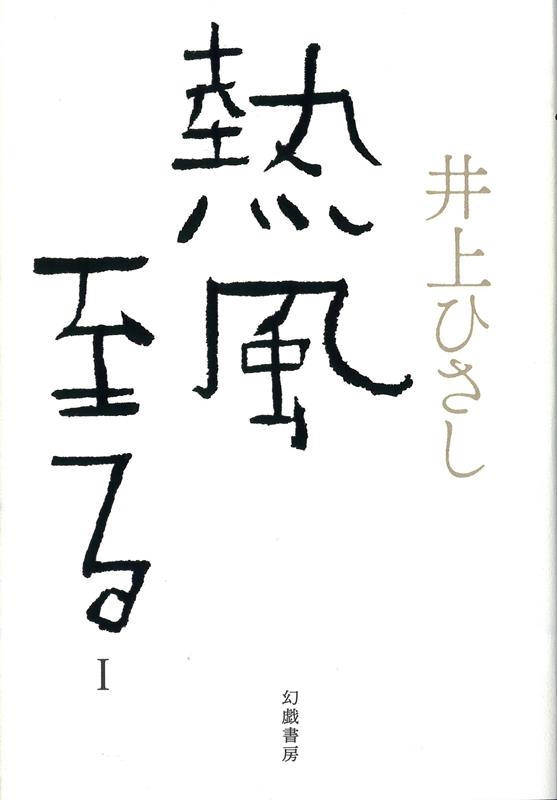 井上ひさし
熱風
至る
I
幻戯書房